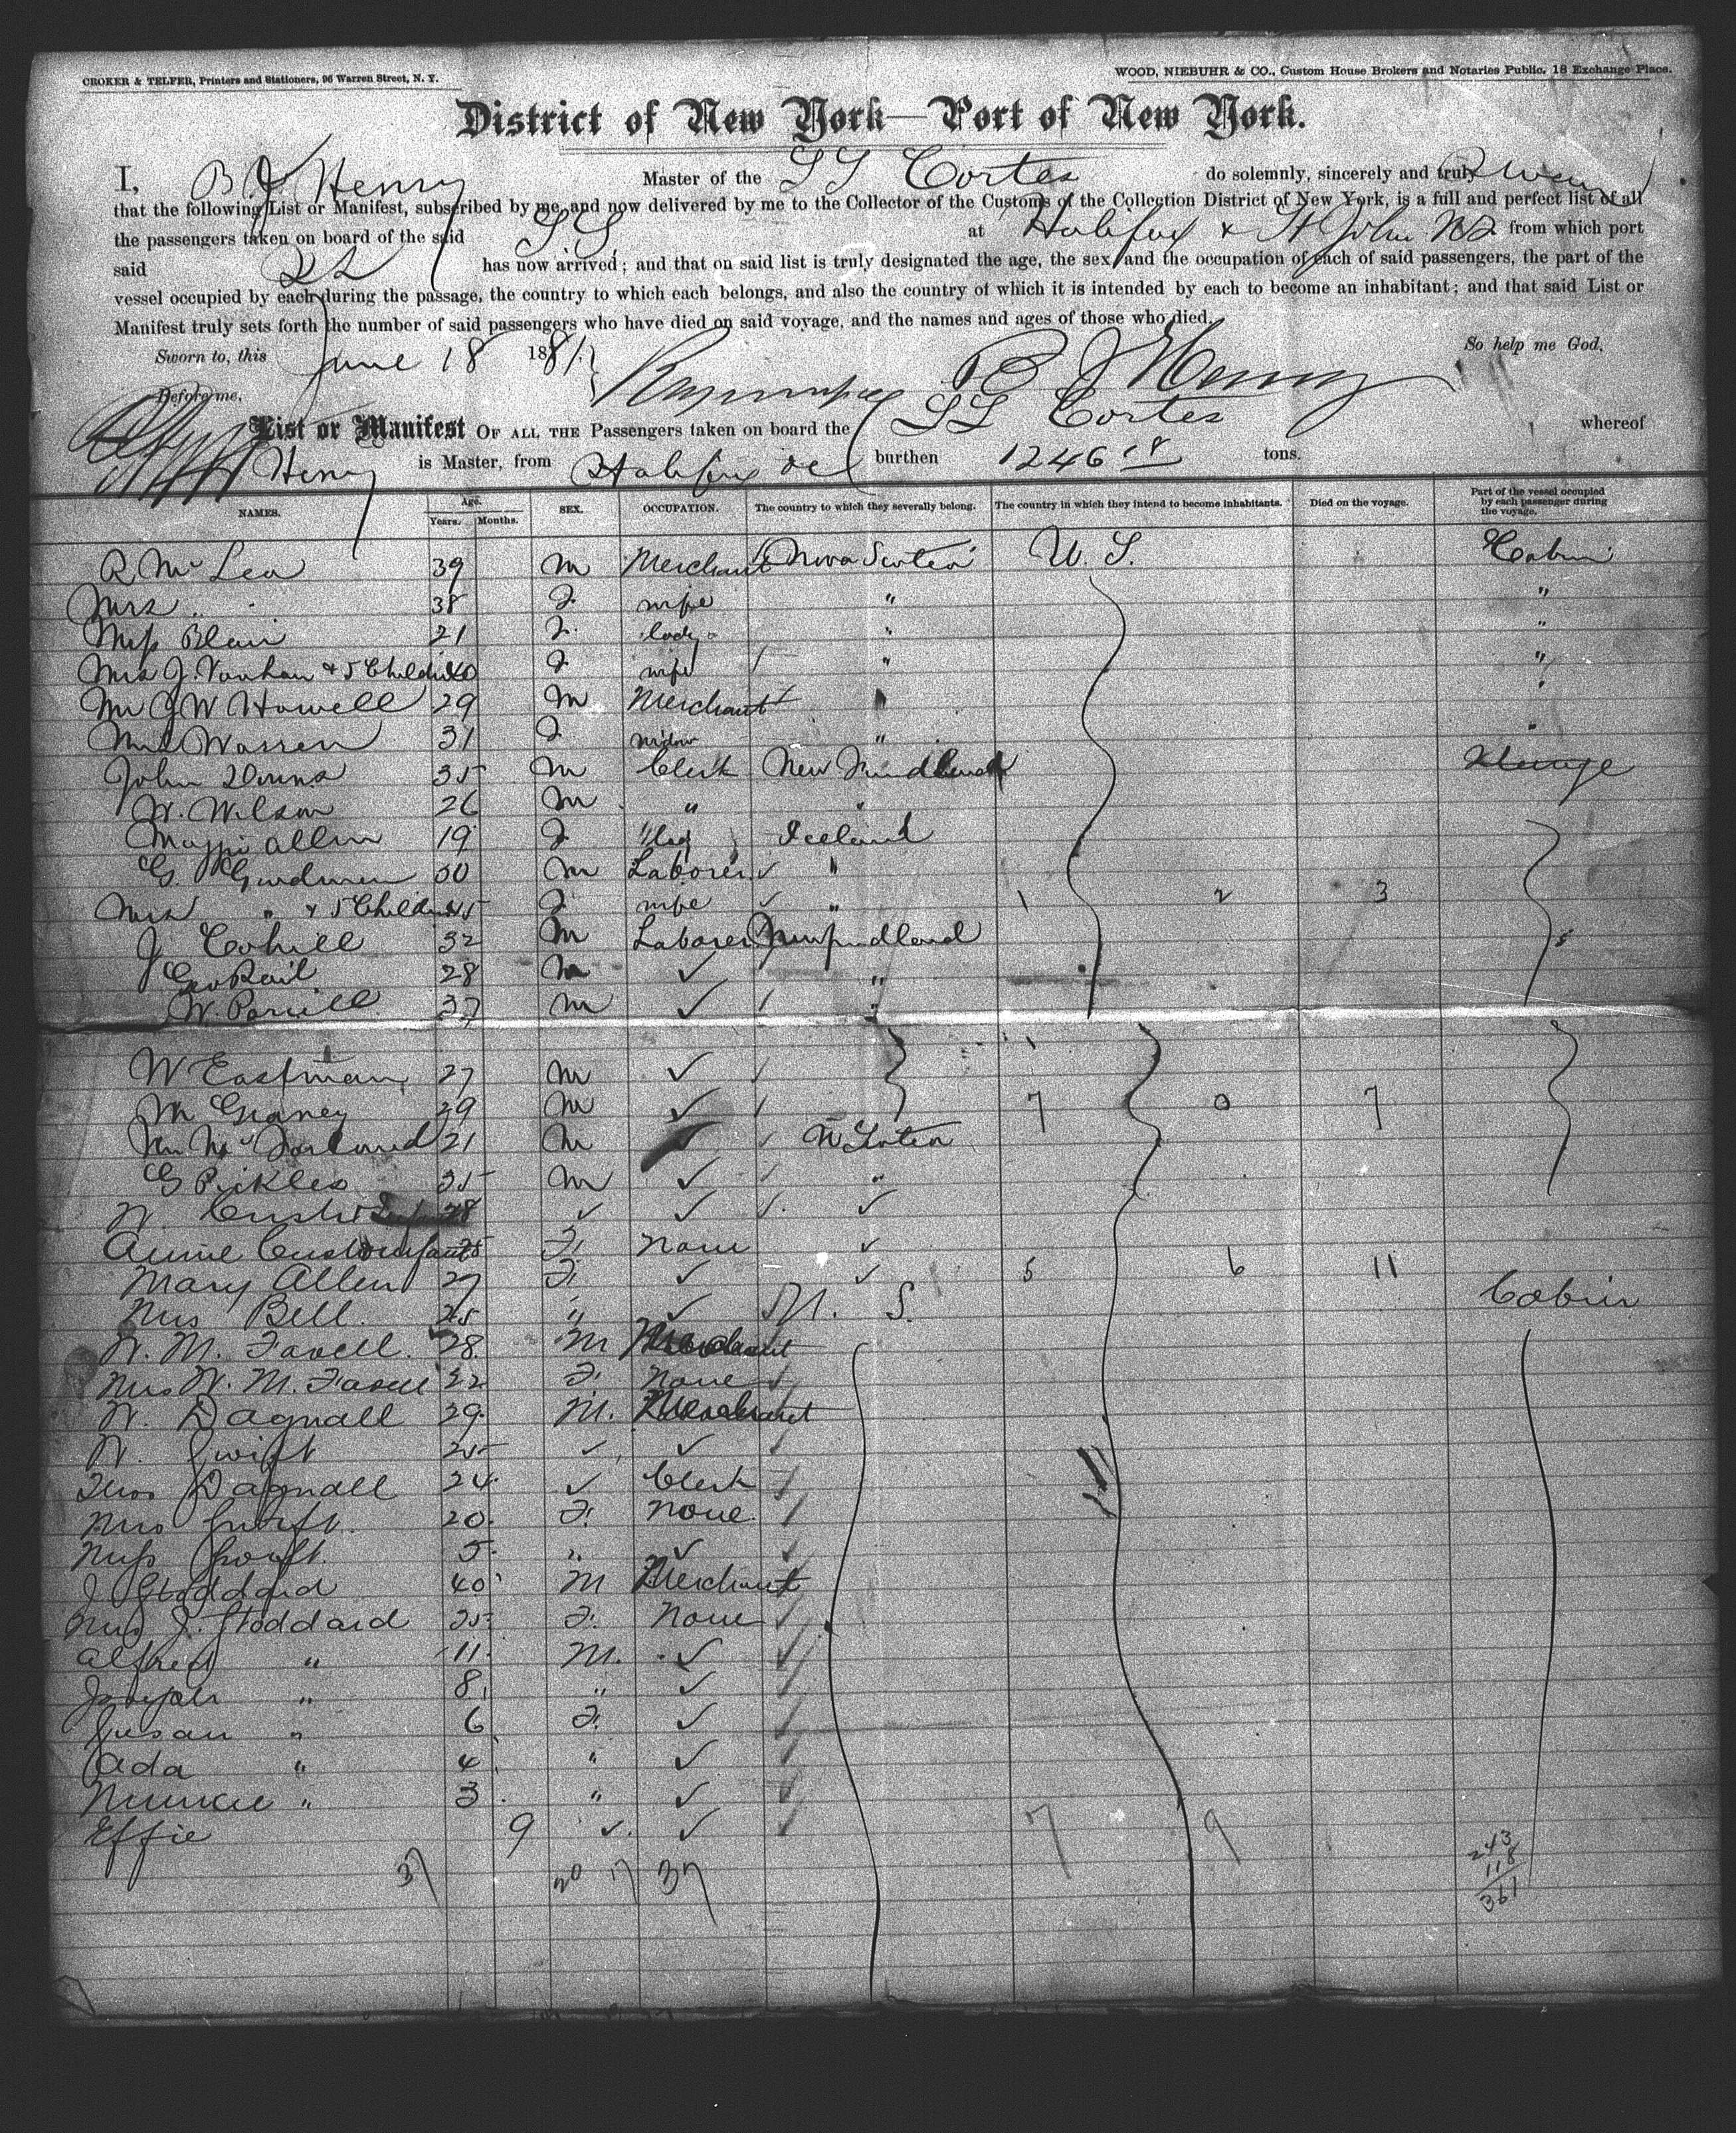 CROKER & TELFER, Printers and Stationers, 96 Warren Street, N. Y.
WOOD, NIEBUHR & CO., Custom House Brokers and Notaries Public, 18 Exchange Place.
District of New York—Port of New York.
I, B J Henry Master of the SS Cortes do solemnly, sincerely and truly swear
that the following List or Manifest, subscribed by me, and now delivered by me to the Collector of the Customs of the Collection District of New York, is a full and perfect list of all
the passengers taken on board of the said SS at Halifax & St John from which port
said SS has now arrived; and that on said list is truly designated the age, the sex, and the occupation of each of said passengers, the part of the
vessel occupied by each during the passage, the country to which each belongs, and also the country of which it is intended by each to become an inhabitant; and that said List or
Manifest truly sets forth the number of said passengers who have died on said voyage, and the names and ages of those who died.
Sworn to, this June 18 1881. So help me God,
Before me, B J Henry
List or Manifest OF ALL THE Passengers taken on board the SS Cortes whereof
Henry is Master, from Halifax burthen 1246 18 tons.
NAMES. Age. Years. Months. SEX. OCCUPATION. The country to which they severally belong. The country in which they intend to become inhabitants. Died on the voyage. Part of the vessel occupied by each passenger during the voyage.
R Mc Lea 39 M Merchant Nova Scotia U. S. Cabin
Mrs " 38 F wife " "
Miss Blair 21 F. lady " "
Mrs J. Vaughan & 5 Children 40 F wife " "
Mr J W Howell 29 M Merchant " "
Mrs Warren 31 F widow " "
John Downs 35 M Clerk New Foundland Steerage
W. Wilson 26 M " "
Allen 19 F Iceland
G. 50 M Laborer "
Mrs " & 5 Children 45 F wife " 1 2 3
J Cohill 32 M Laborer Newfoundland 5
Geo Rail 28 M ✓ "
W. 37 M ✓ "
W Eastman 27 M ✓
M Graney 29 M ✓ 7 0 7
21 M ✓ N Scotia
G Pickles 35 M ✓ "
W. 28 ✓ ✓ ✓
Annie 25 F. None ✓
Mary Allen 27 F. ✓ ✓ 5 6 11
Mrs Bell. 25 " ✓ S. Cabin
W. M. Favell. 28. M Merchant
Mrs W. M. Favell 22 F. None
W. Dagnall 29. M. Merchant
W. Swift 25 ✓ ✓
Thos Dagnall 24. ✓ Clerk
Mrs Swift. 20. F. None.
Miss Swift. 5. " ✓
J Stoddard 40 M Merchant
Mrs J. Stoddard 35 F. None
Alfred " 11. M. ✓
Joseph " 8. " ✓
Susan " 6 F. ✓
Ada " 4 " ✓
" 3. " ✓
Effie 9 ✓ ✓ 7 9
37 20 17 37
243
118
361